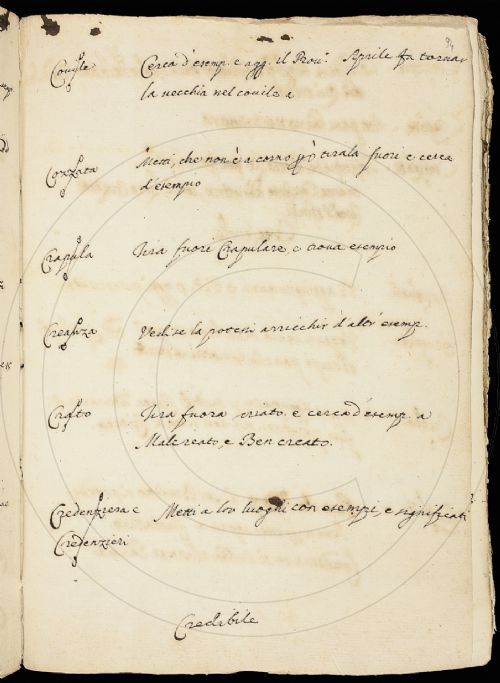 94
Covile Cerca d'esemp. e agg. il Prov. Aprile fa tornar
la vecchia nel covile a
Cozzata Metti, che non è a corno però tirala fuori e cerca
d'esempio
Crapula Tira fuori Crapulare, e trova esempio
Creanza Vedi se la potessi arricchir d'altr'esemp.
Creato Tira fuora creato e cerca d'esemp. a
Malcreato, e Ben creato.
Credenziera e Metti a lor luoghi con esempi, e significati
Credenzieri
Credibile